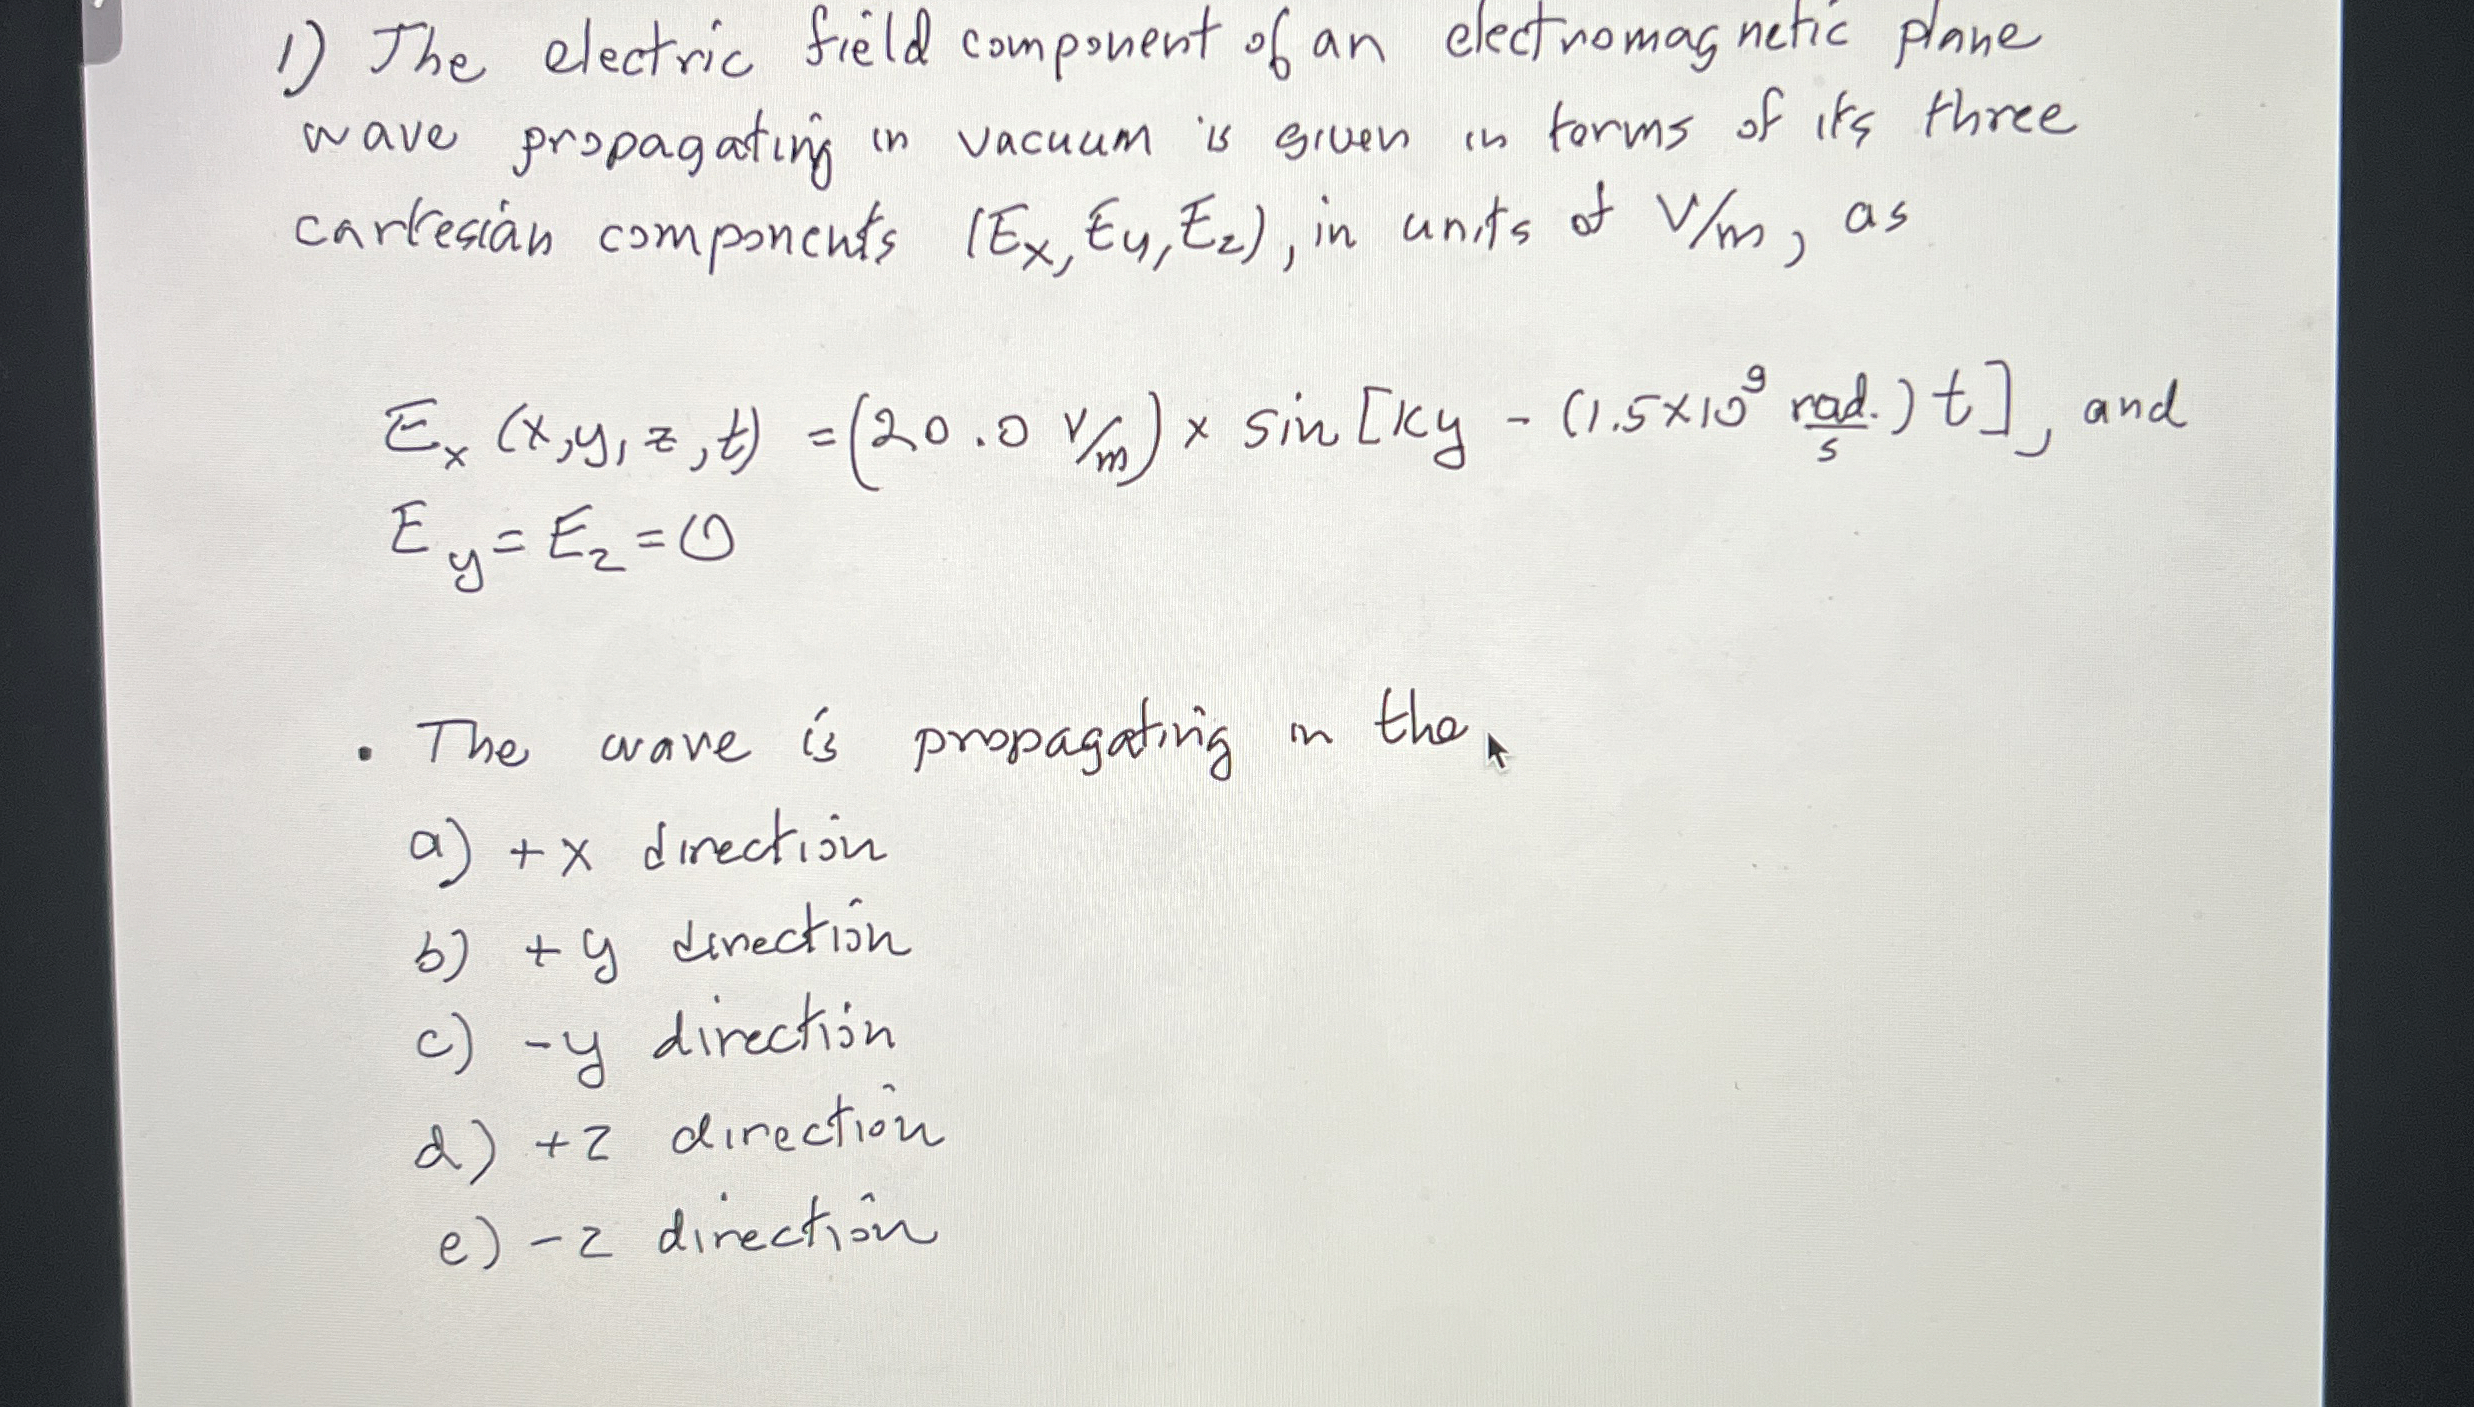 1) The electric field component of an electromagnetic plane
wave propagating in vacuum is given in terms of its three
cartesian components (Ex, Ey, Ez), in units of V/m, as
Ex (x,y,z,t) = (20.0 V/m) x sin [ky - (1.5x10⁹ rad./s) t], and
Ey = Ez = 0
. The wave is propagating in the
a) +x direction
b) +y direction
c) -y direction
d) +z direction
e) -z direction